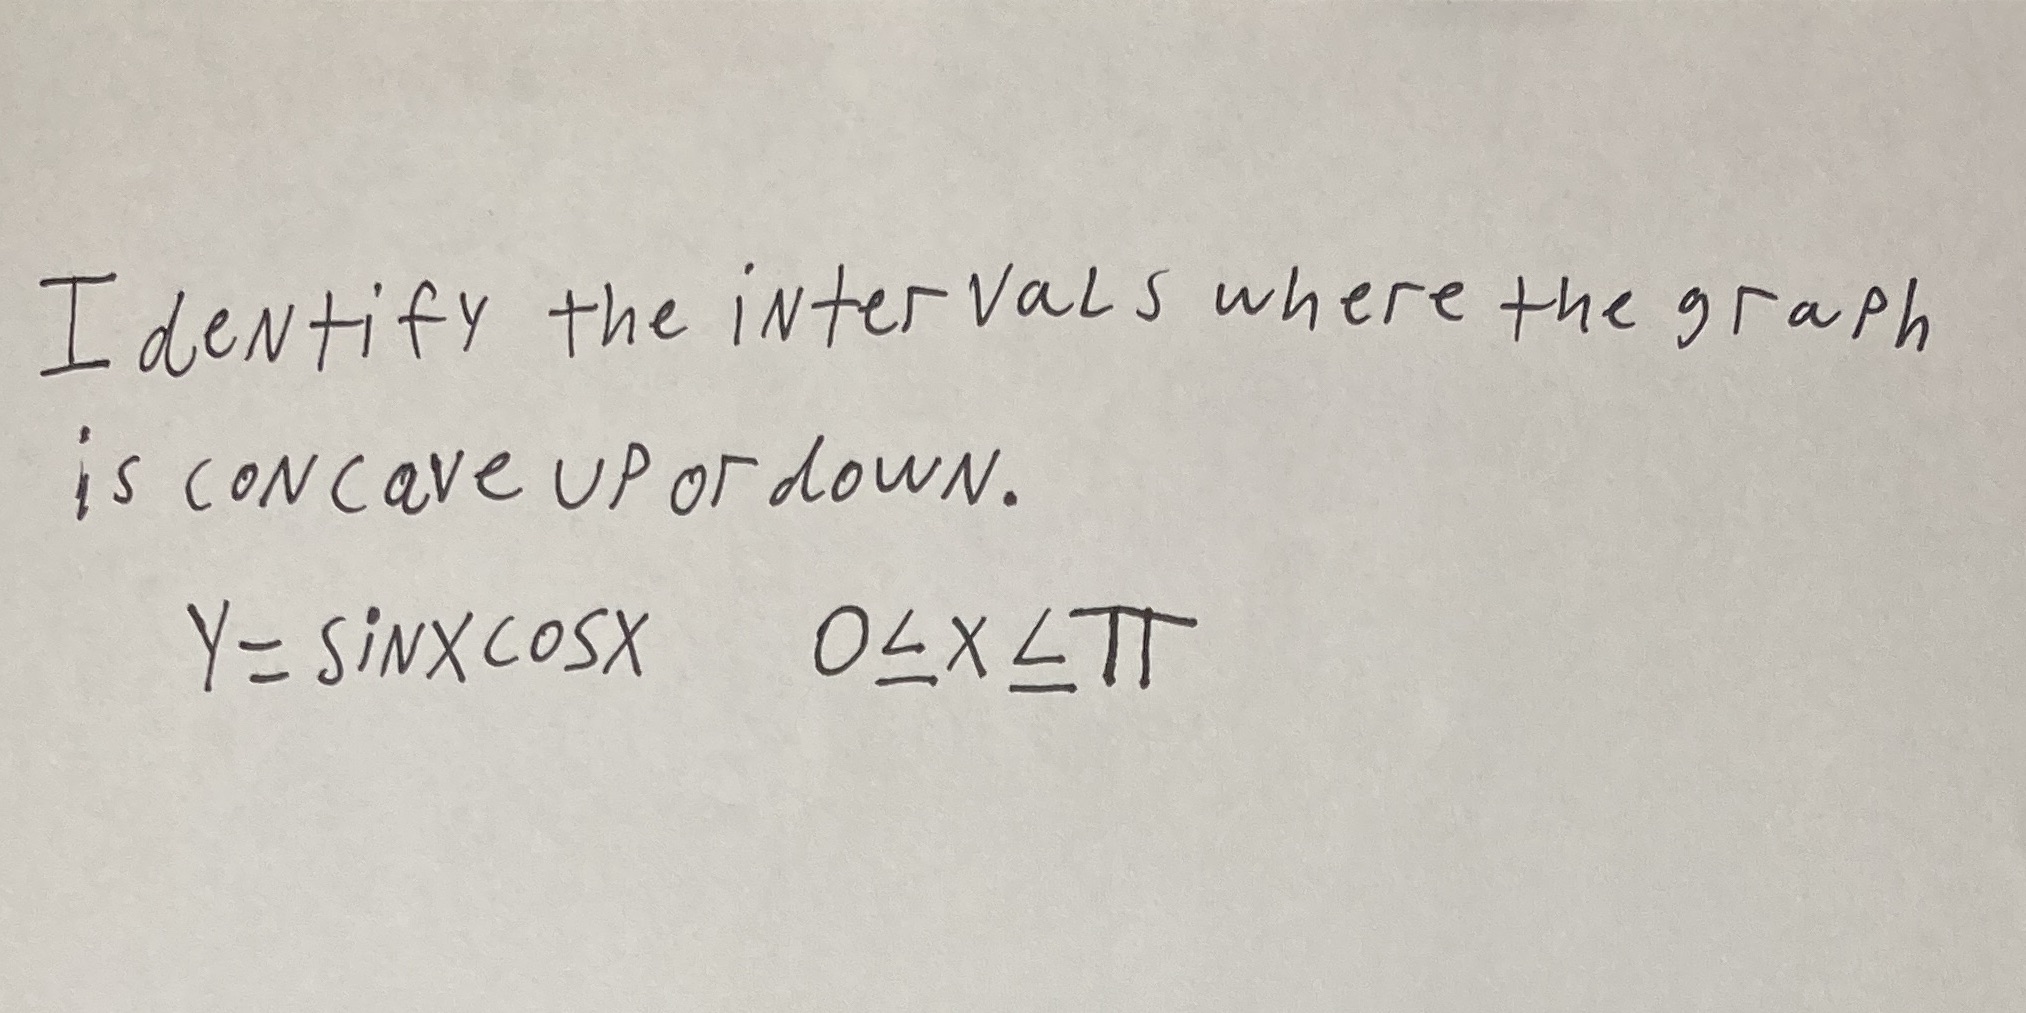 Identify the intervals where the graph
is concave up or down.
y = sinx cosx 0 ≤ x ≤ π